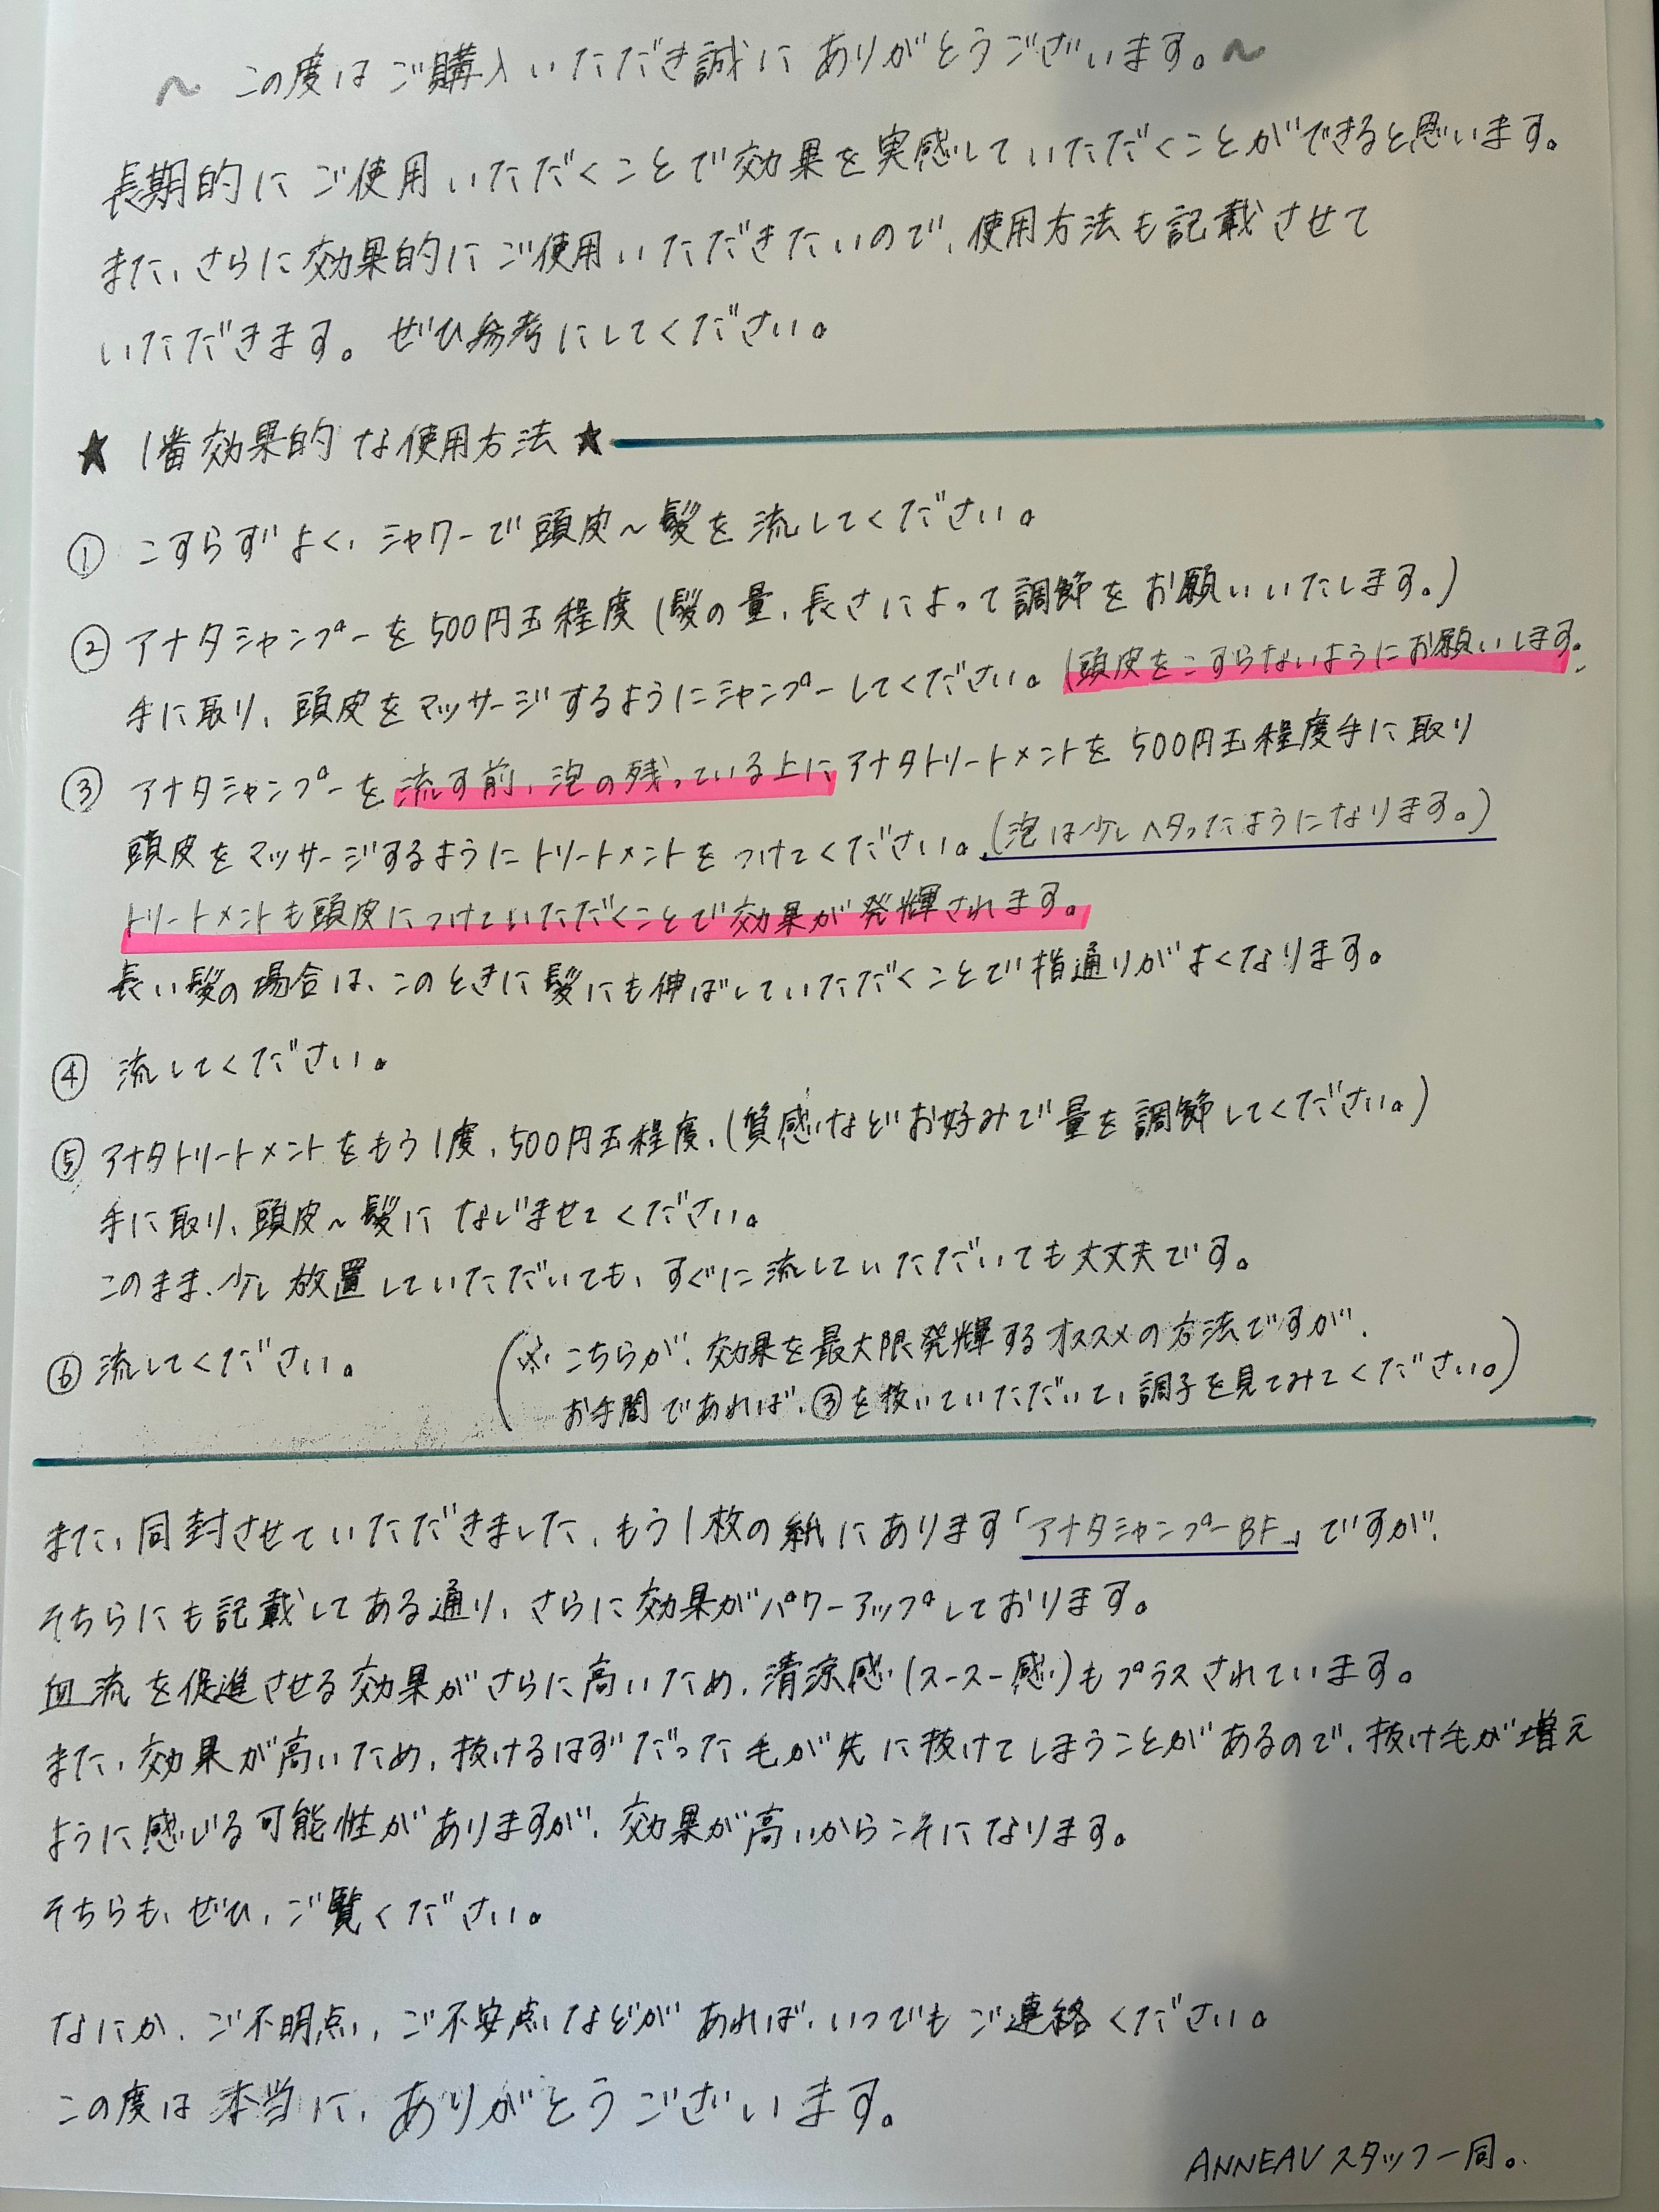 ～ この度はご購入いただき誠にありがとうございます。～
長期的にご使用いただくことで効果を実感していただくことができると思います。
また、さらに効果的にご使用いただきたいので、使用方法も記載させて
いただきます。ぜひ参考にしてください。
★ 1番効果的な使用方法 ★
① こすらずよく、シャワーで頭皮～髪を流してください。
② アナタシャンプーを500円玉程度(髪の量、長さによって調節をお願いいたします。)
手に取り、頭皮をマッサージするようにシャンプーしてください。(頭皮をこすらないようにお願いします。
③ アナタシャンプーを流す前、泡の残っている上にアナタトリートメントを500円玉程度手に取り
頭皮をマッサージするようにトリートメントをつけてください。(泡は少しヘタったようになります。)
トリートメントも頭皮につけていただくことで効果が発揮されます。
長い髪の場合は、このときに髪にも伸ばしていただくことで指通りがよくなります。
④ 流してください。
⑤ アナタトリートメントをもう1度、500円玉程度、(質感などお好みで量を調節してください。)
手に取り、頭皮～髪になじませてください。
このまま、少し放置していただいても、すぐに流していただいても大丈夫です。
⑥ 流してください。
(※こちらが、効果を最大限発揮するオススメの方法ですが、
お手間であれば、③を抜いていただいて、調子を見てみてください。)
また、同封させていただきました、もう1枚の紙にあります「アナタシャンプーBF」ですが、
そちらにも記載してある通り、さらに効果がパワーアップしております。
血流を促進させる効果がさらに高いため、清涼感(スースー感)もプラスされています。
また、効果が高いため、抜けるはずだった毛が先に抜けてしまうことがあるので、抜け毛が増え
ように感じる可能性がありますが、効果が高いからこそになります。
そちらも、ぜひ、ご覧ください。
なにか、ご不明点、ご不安点などがあれば、いつでもご連絡ください。
この度は本当に、ありがとうございます。
ANNEAUスタッフ一同。